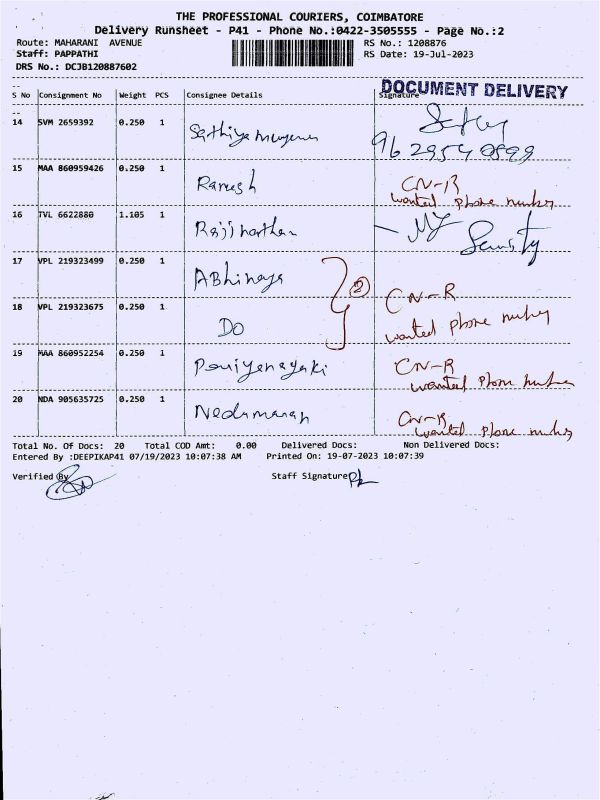 THE PROFESSIONAL COURIERS, COIMBATORE
Delivery Runsheet - P41 - Phone No.:0422-3505555 - Page No.:2
Route: MAHARANI AVENUE
RS No.: 1208876
Staff: PAPPATHI
RS Date: 19-Jul-2023
DRS No.: DCJB120887602
DOCUMENT DELIVERY
S No Consignment No Weight PCS Consignee Details Signature
14 SVM 2659392 0.250 1
9629540899
15 MAA 860959426 0.250 1 Ramesh CN-R
wanted phone number
16 TVL 6622880 1.105 1
Security
17 VPL 219323499 0.250 1 Abhinaya
2 CN-R
18 VPL 219323675 0.250 1 Do wanted phone number
19 MAA 860952254 0.250 1 Periyanayaki CN-R
wanted phone number
20 NDA 905635725 0.250 1 Nedumaran CN-R
wanted phone number
Total No. Of Docs: 20 Total COD Amt: 0.00 Delivered Docs: Non Delivered Docs:
Entered By :DEEPIKAP41 07/19/2023 10:07:38 AM Printed On: 19-07-2023 10:07:39
Verified By Staff Signature